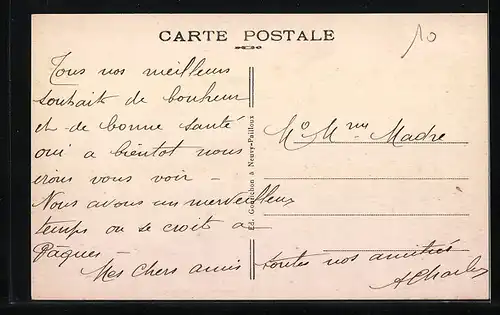 CARTE POSTALE
10
Tous nos meilleurs
souhaits de bonheur
et de bonne santé
oui a bientot nous
irons vous voir -
Nous avons un merveilleux
temps on se croit a
Pâques -
Mes chers amis toutes nos amitiés
ACharles
Mr Mme Madre
Ed. Gourichon à Neuvy-Pailloux